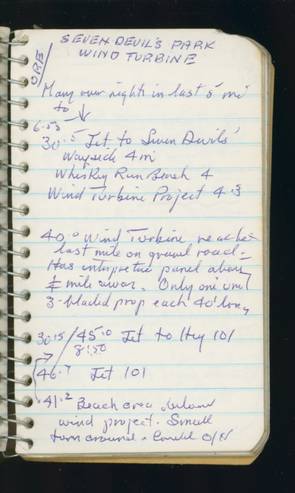 ORE/
SEVEN DEVIL'S PARK
WIND TURBINE
Many over nights in last 5 mi
to
6.53
30.5 Jct. to Seven Devils'
Wayside 4 mi
Whiskey Run Beach 4
Wind Turbine Project 4.3
40.0 Wind Turbine reached
last mile on gravel road -
Has interpretive panel about
mile away. Only one unit
3-bladed prop each 40' long
30.15/45.0 Jct to Hwy 101
8:50
46.7 Jct 101
41.2 Beach area, below
wind project. Small
turn around. Could O/N